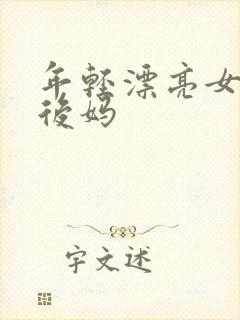 年轻漂亮女
後妈
字文述